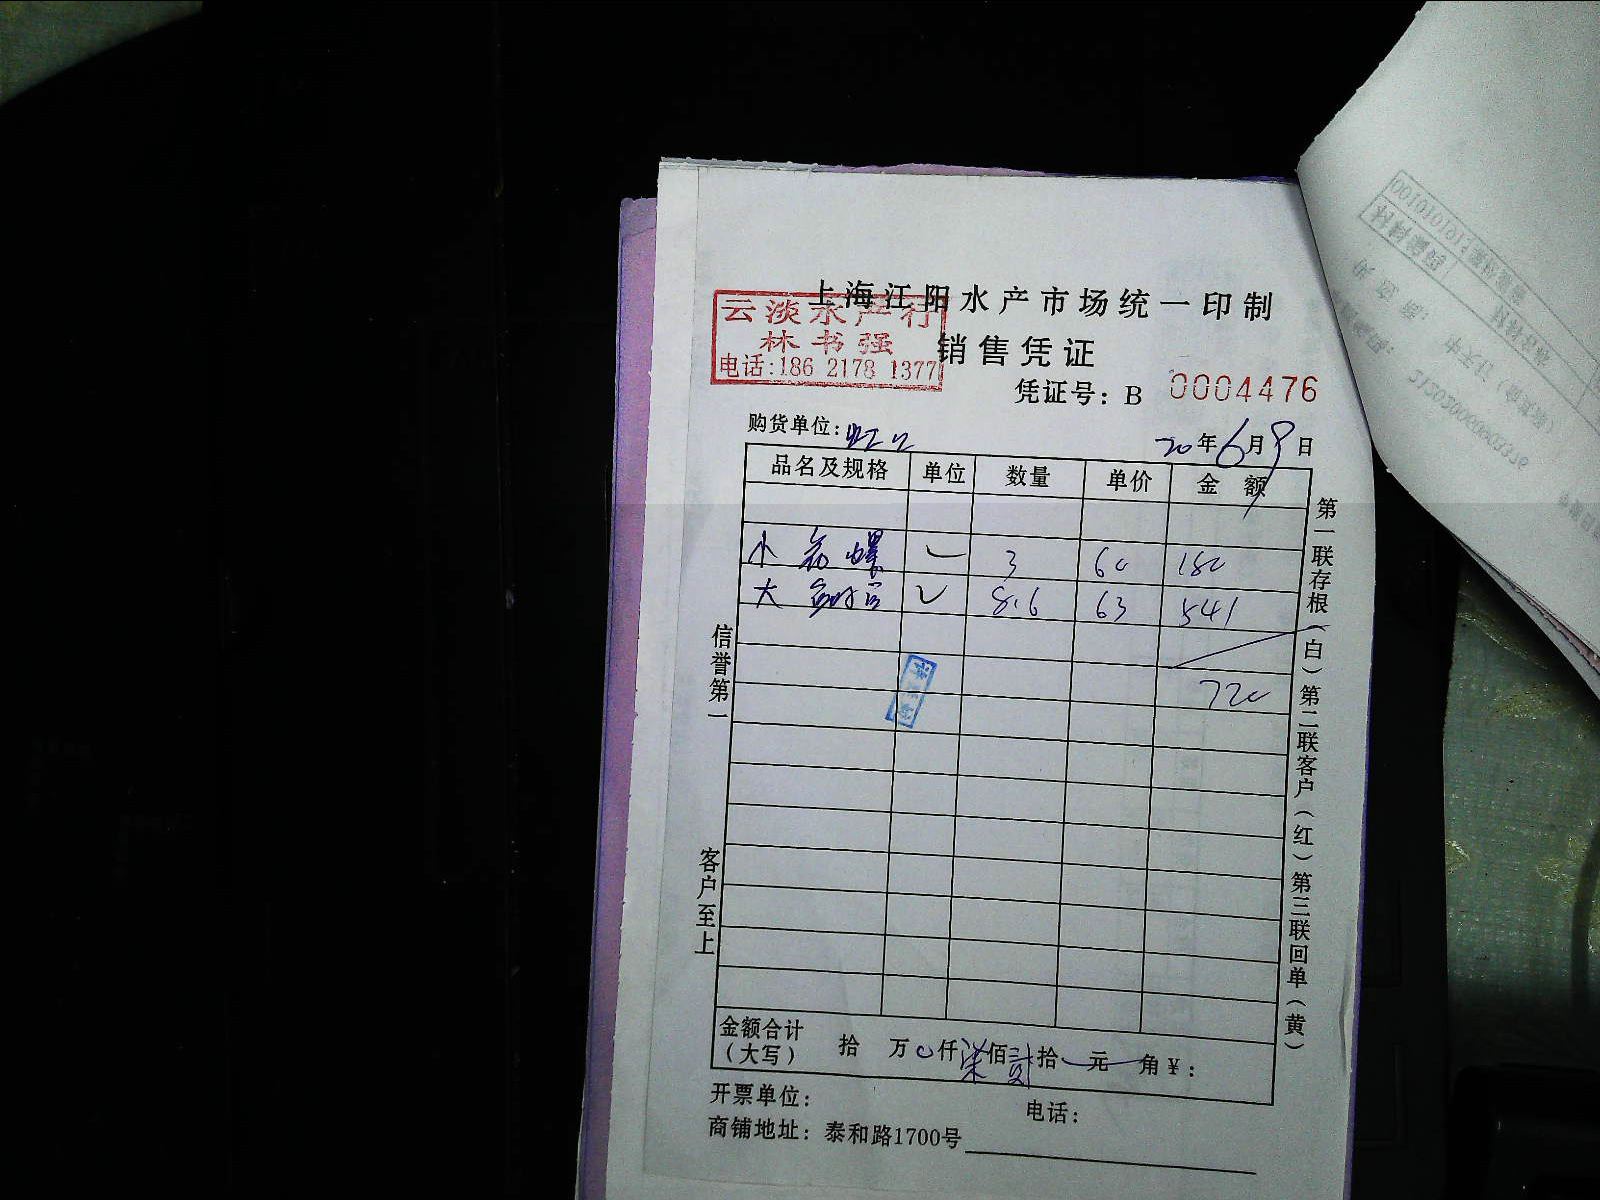 上海江阳水产市场统一印制
云淡水产行
林书强
电话:186 2178 1377
销售凭证
凭证号: B 0004476
购货单位: 虹口
20年6月9日
品名及规格 单位 数量 单价 金额
小 花螺 3 60 180
大 8.6 63 541
720
信誉第一
客户至上
第一联存根(白)第二联客户(红)第三联回单(黄)
金额合计(大写) 拾 万 0仟柒佰贰拾 元 角¥:
开票单位: 电话:
商铺地址: 泰和路1700号